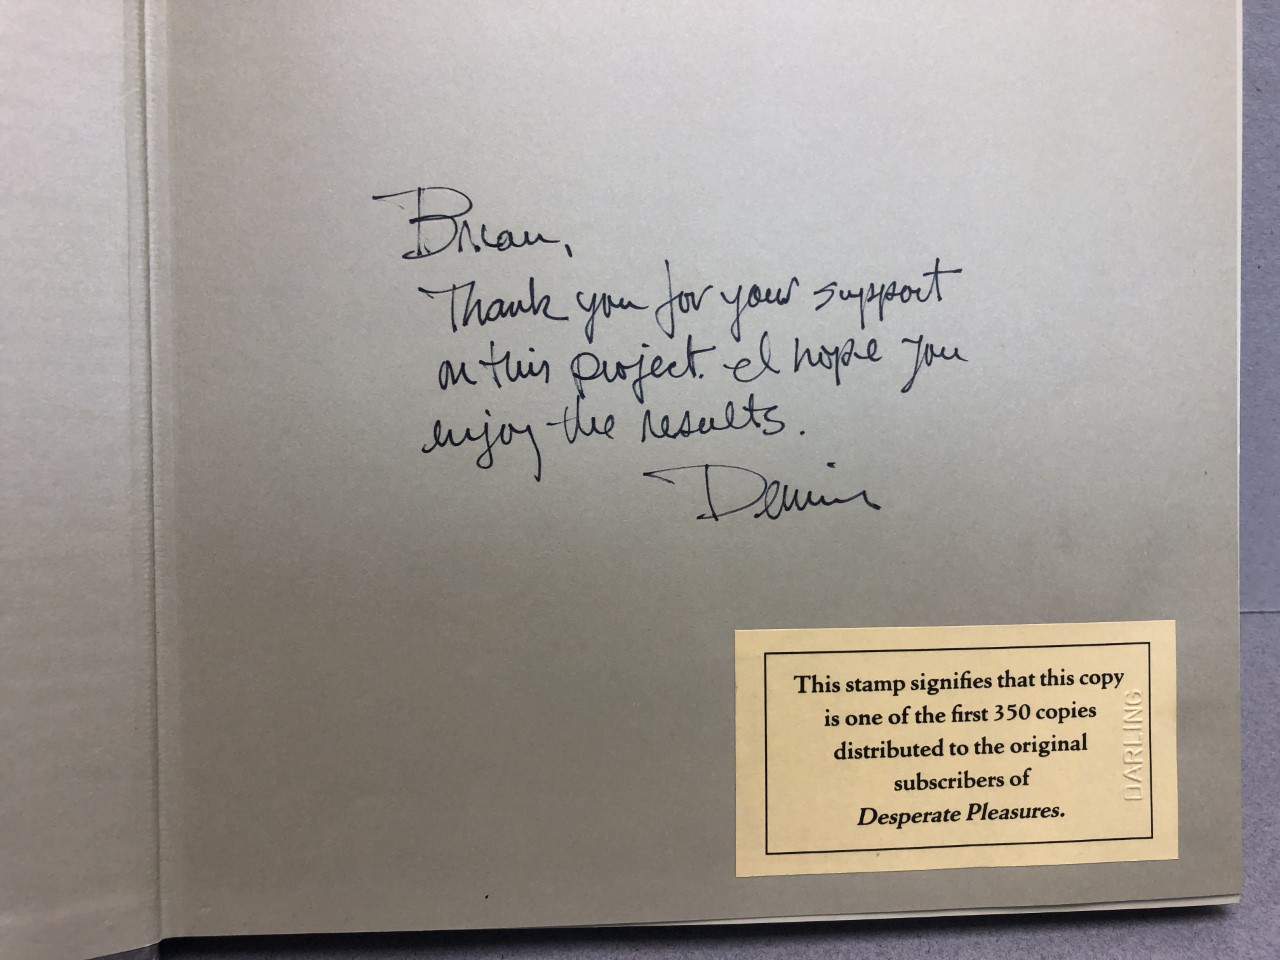 Brian,
Thank you for your support
on this project. I hope you
enjoy the results.
Dennis
This stamp signifies that this copy
is one of the first 350 copies
distributed to the original
subscribers of
Desperate Pleasures.
DARLING